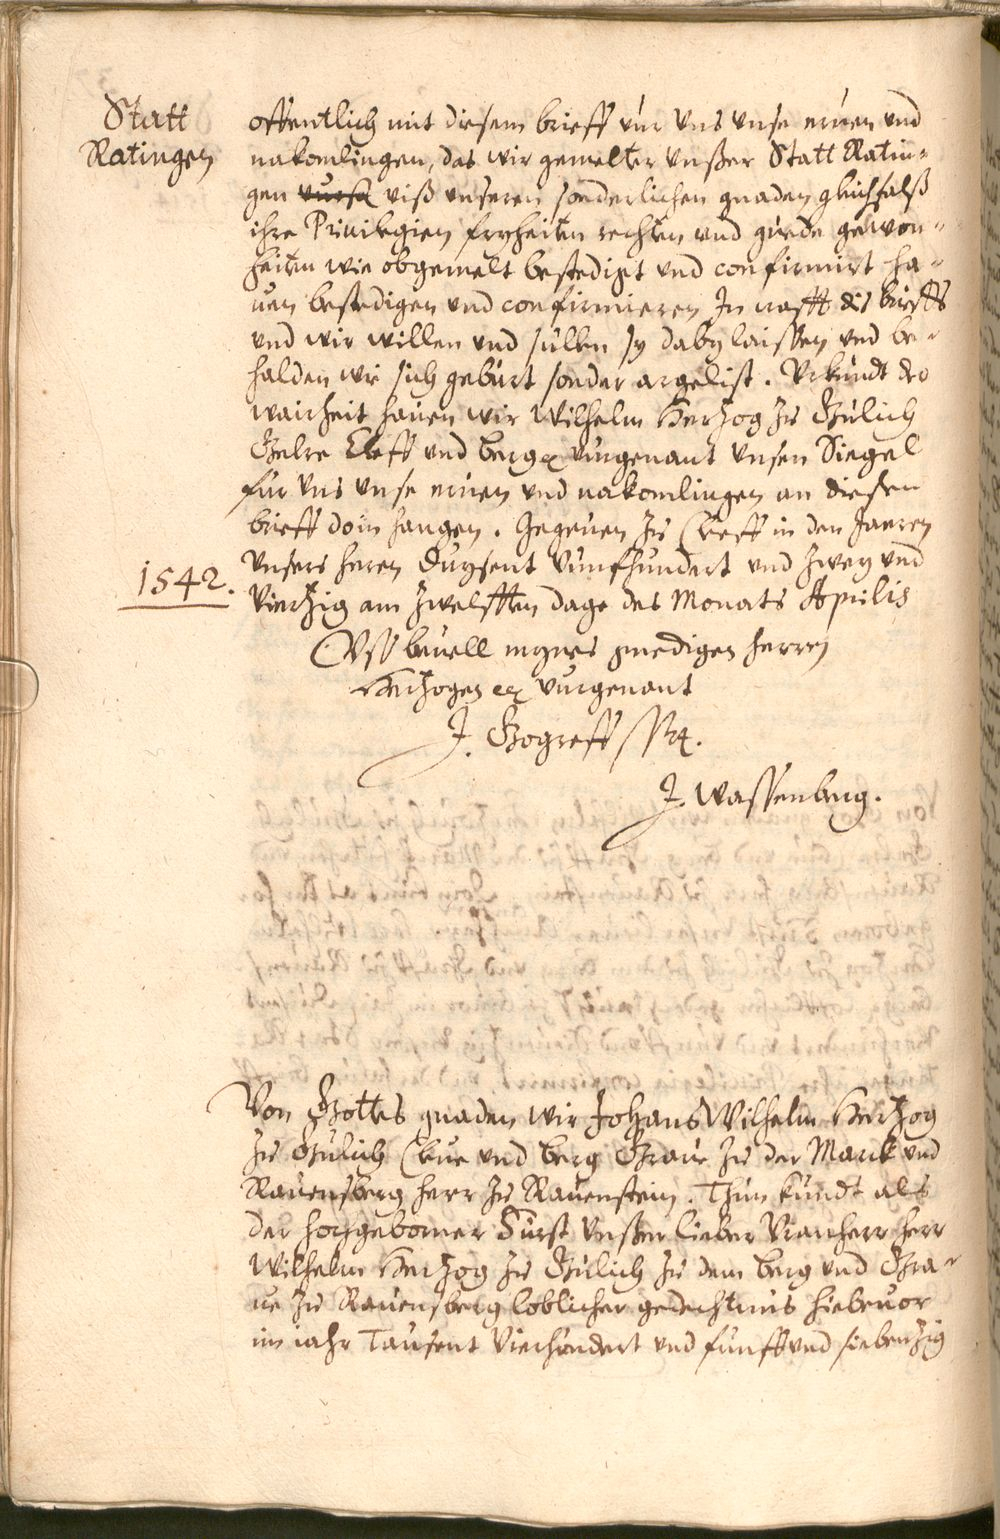 Statt
Ratingen
offentlich mit diesem brieff vur Vns vnse eruen und
nakomlingen, das wir gemelter Vnßer Statt Ratin-
gen vurß viß vnseren sonderlichen gnaden gleichfalß
ihre Priuilegien fryheiten rechten vnd guede gewon-
heiten wie obgemelt bestedigt vnd confirmirt ha-
uen bestedigen vnd confirmieren In crafft dis brieffs
vnd wir willen vnd sullen sy daby laissen vnd be-
halden wie sich geburt sonder argelist. Vrkundt der
wairheit hauen wir Wilhelm Hertzog zu Gulich
Gelre Cleff vnd Berg vurgenant Vnsen Siegel
fur Vns vnse eruen vnd nakomlingen an diesen
brieff doin hangen. Gegeuen zu Cleeff in den Jaeren
1542.
Vnsers heren Duysent Vunfhundert vnd zwey vnd
Viertzig am zwelfften dage des Monats Aprilis
Vss beuell mynes gnedigen herren
Hertzogen vurgenant
J. Gogreff
J. Wassenberg.
Von Gottes gnaden wir Johans Wilhelm Hertzog
zu Gulich Cleue vnd Berg Graue zu der Marck vnd
Rauensberg herr zu Rauenstein. Thun kundt als
der hochgeborner Furst Vnßer lieber Vranherr herr
Wilhelm Hertzog zu Gulich zu dem Berg vnd Gra-
ue zu Rauensberg loblicher gedechtnus hiebeuor
im iahr Tausent Vierhundert vnd funff vnd siebentzig